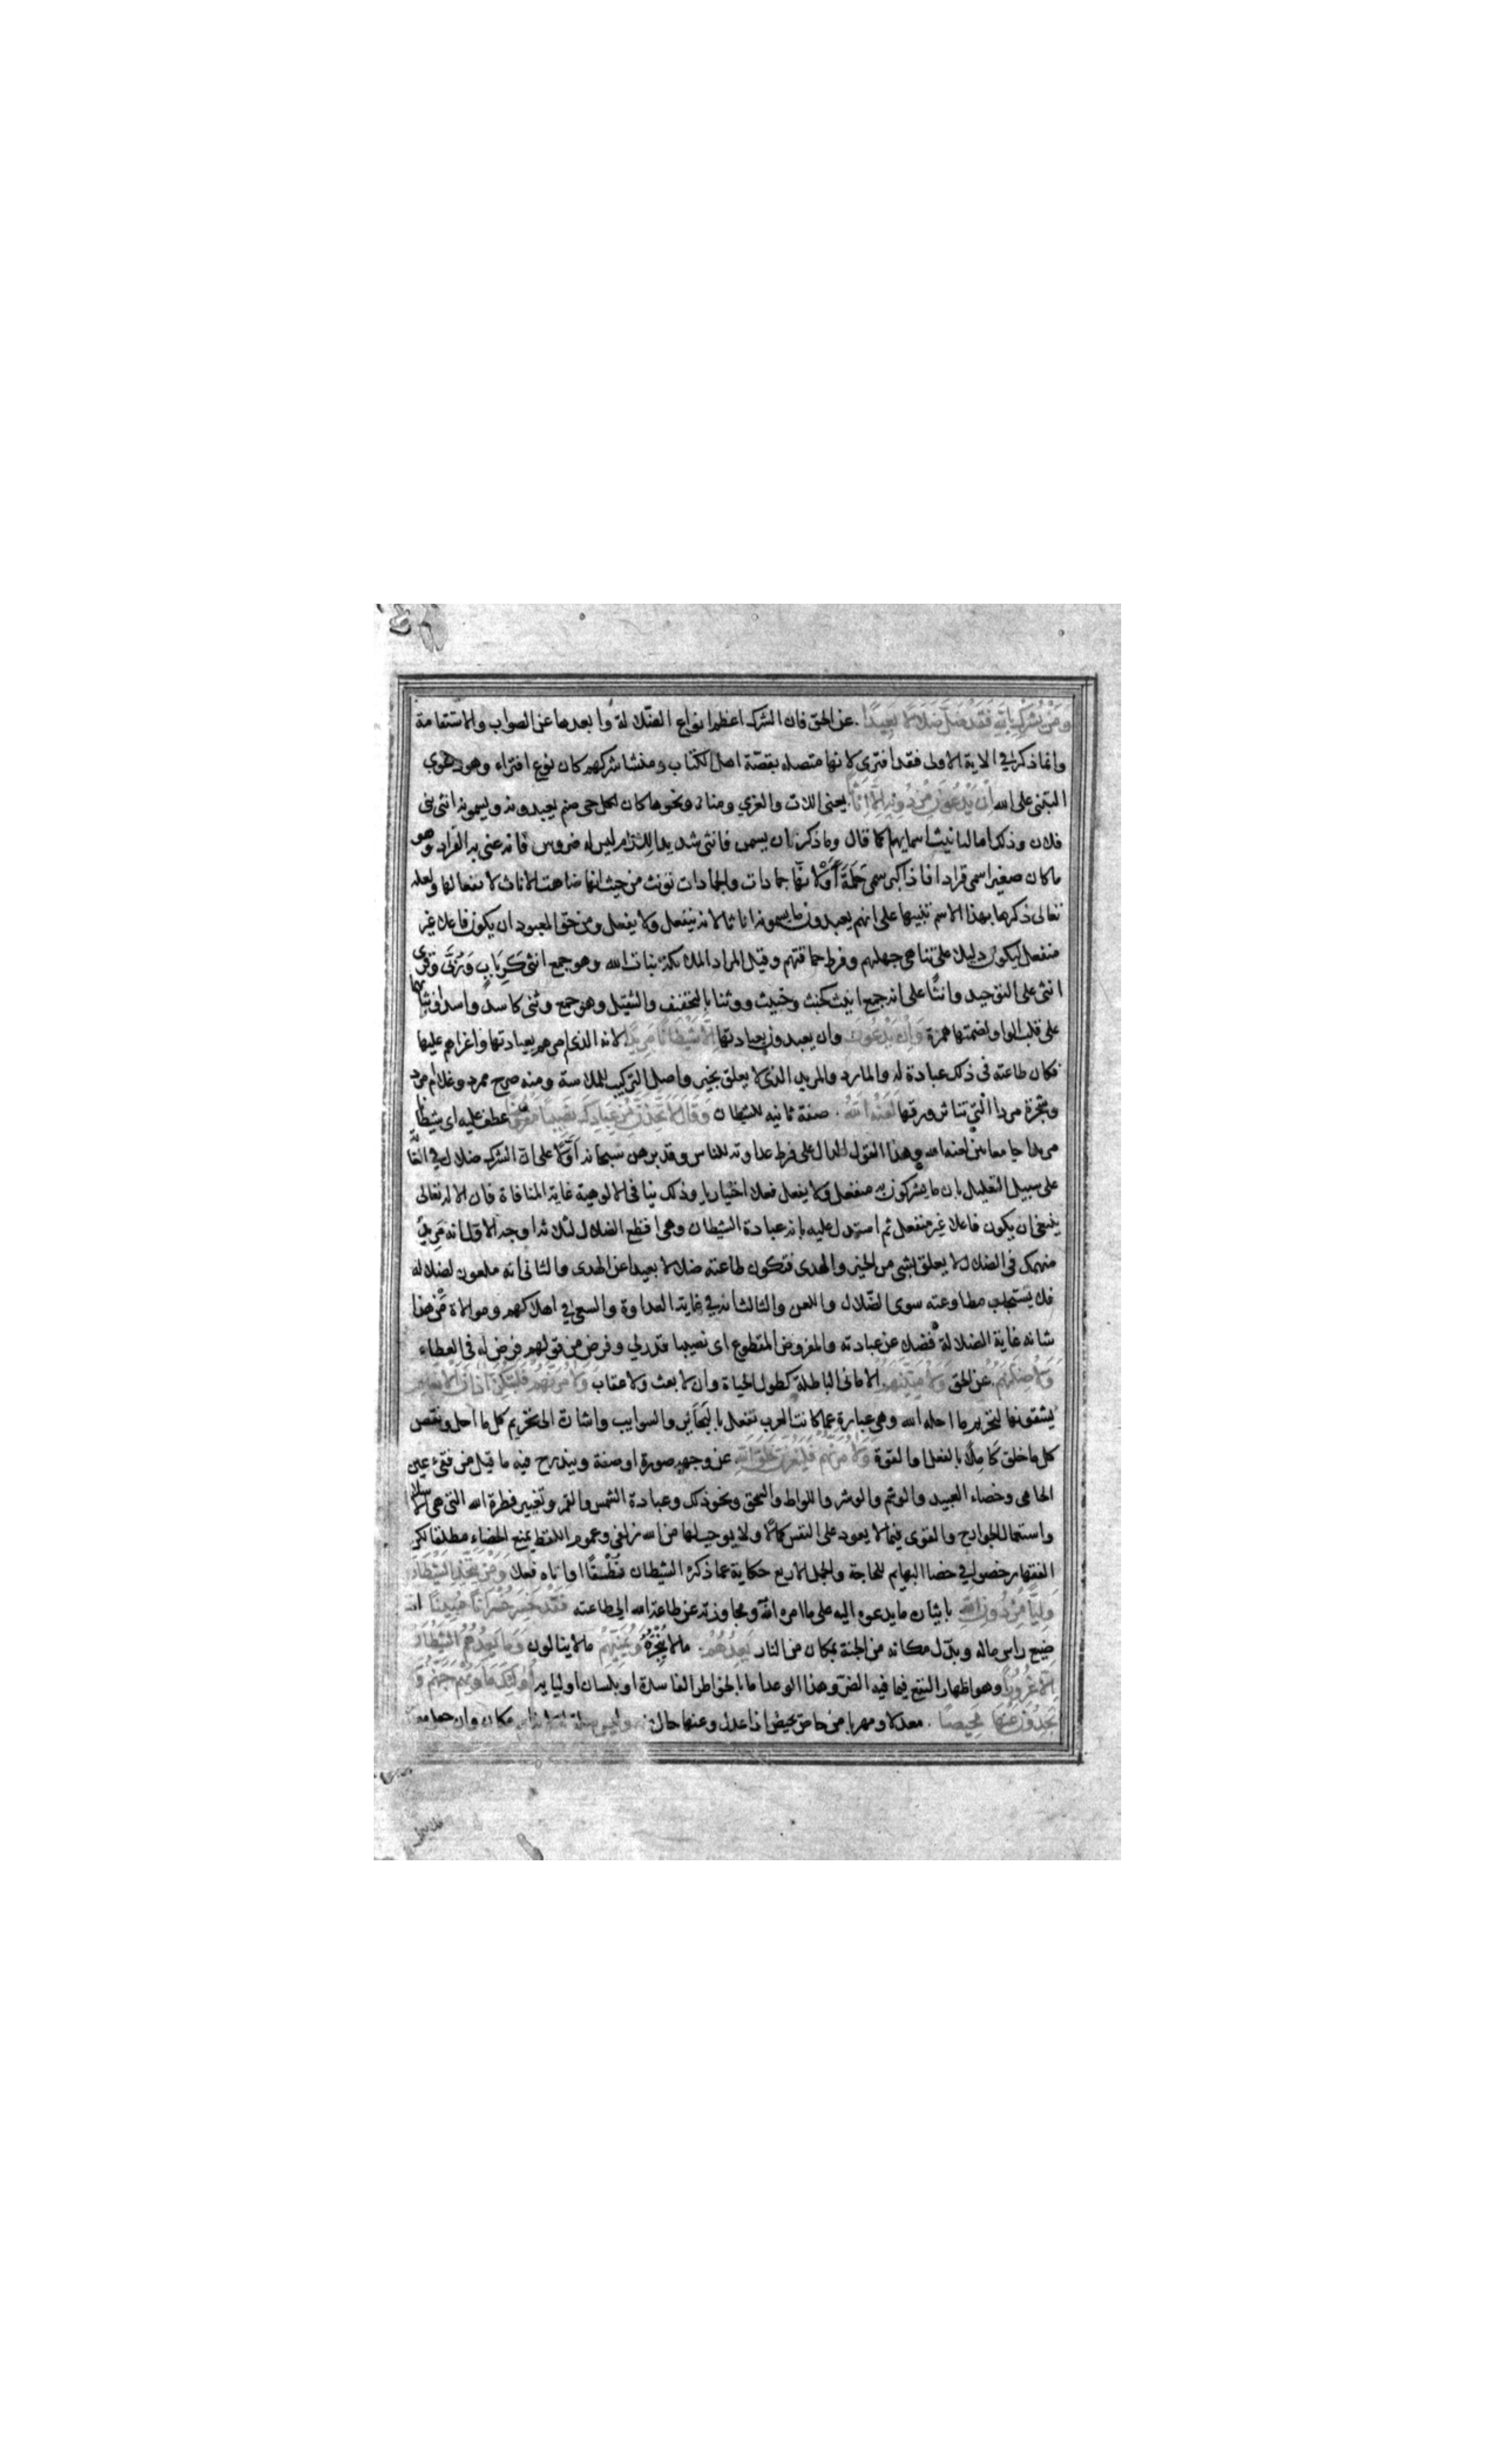 ومن يشرك بالله فقد ضل ضلالا بعيدا عن الحق فان الشرك اعظم انواع الضلالة وابعدها عن الصواب والاستقامة
وانما ذكر في الاية الاولى فقد افترى لانها متصلة بقصة اهل الكتاب ومنشا شركهم كان نوع افتراء وهو دعوى
التبنى على الله ان يدعون من دونه الا اناثا يعنى اللات والعزي ومناة ونحوها كان لكل حى صنم يعبدونه ويسمونه انثى بنى
فلان وذلك اما لتانيث اسمايهم كما قال وما ذكر فان يسمن فانثى شديد الازم ليس له ضروس فانه عنى به القراد وهو
ما كان صغيرا سمى قرادا فاذا كبر سمى حلمة أولانها جمادات والجمادات تونث من حيث انها ضاهت الاناث لانفعالها ولعله
تعالى ذكرها بهذا الاسم تنبيها على انهم يعبدون ما يسمونه اناثا لانه ينفعل ولا يفعل ومن حق المعبود ان يكون فاعلا غير
منفعل ليكون دليلا على تناهى جهلهم وفرط حماقتهم وقيل المراد الملائكة بنات الله وهو جمع انثى كرباب وربى وقرى
انثى على التوحيد وانثا على انه جمع انيث كخبث وخبيث ووثنا بالتخفيف والتثقيل وهو جمع وثنى كاسد واسد واثنا بهما
على قلب الواو لضمتها همزة وان يدعون وان يعبدون بعبادتها الا شيطانا مريدا لانه الذى امرهم بعبادتها واغراهم عليها
فكان طاعته فى ذلك عبادة له والمارد والمريد الذى لا يعلق بخير واصل التركيب للملاسة ومنه صرح ممرد وغلام امرد
وشجرة مردا التي تناثر ورقها لعنه الله صفة ثانيه للشيطان وقال لاتخذن من عبادك نصيبا مفروضا عطف عليه اى شيطانا
مريدا جامعا بين لعنة الله وهذا القول الدال على فرط عداوته للناس وقد برهن سبحانه أولا على ان الشرك ضلال في الغاية
على سبيل التعليل بان ما يشركون به منفعل ولا يفعل فعلا اختياريا وذلك ينافى الالوهية غاية المنافاة فان الاله تعالى
ينبغى ان يكون فاعلا غير منفعل ثم استدل عليه بانه عبادة الشيطان وهى افظع الضلال لثلاثة اوجه الاول انه مريد
منهمك فى الضلال لا يعلق بشى من الخير والهدى فتكون طاعته ضلالا بعيدا عن الهدى والثانى انه ملعون لضلاله
فلا يستجلب مطاوعته سوى الضلال واللعن والثالث انه في غاية العداوة والسعي في اهلاكهم وموالاة من هذا
شانه غاية الضلالة فضلا عن عبادته والمفروض المقطوع اى نصيبا قدر لي وفرض من قولهم فرض له فى العطاء
ولاضلنهم عن الحق ولامنينهم الامانى الباطلة كطول الحياة وان لا بعث ولا عقاب ولامرنهم فليبتكن اذان الانعام
يشقونها لتحريم ما احله الله وهى عبارة عما كانت العرب تفعل بالبحائر والسوايب واشارة الى تحريم كل ما احل ونقص
كل ما خلق كاملا بالفعل او القوة ولامرنهم فليغيرن خلق الله عن وجهه صورة او صفة ويندرج فيه ما قيل من فقئ عين
الحامى وخصاء العبيد والوشم والوشر واللواط والسحق ونحو ذلك وعبادة الشمس والقمر وتغيير فطرة الله التى هى الاسلام
واستعمال الجوارح والقوى فيما لا يعود على النفس كمالا ولا يوجب لها من الله زلفى وعموم اللفظ يمنع الخصاء مطلقا لكن
الفقهاء رخصوا في خصا البهايم للحاجة والجمل الاربع حكاية عما ذكره الشيطان نطقا او اتاه فعلا ومن يتخذ الشيطان
وليا من دون الله بايثان ما يدعوه اليه على ما امره الله ومجاوزته عن طاعة الله الى طاعته فقد خسر خسرانا مبينا اذ
ضيع راس ماله وبدل مكانه من الجنة بمكان من النار يعدهم ما لا ينجزه ويمنيهم ما لا ينالون وما يعدهم الشيطان
الا غرورا وهو اظهار النفع فيما فيه الضر وهذا الوعد اما بالخواطر الفاسدة او بلسان اوليايه اولئك ماويهم جهنم ولا
يجدون عنها محيصا معدلا ومهربا من حاص يحيص اذا عدل وعنها حال منه وليس صلة له لانه اسم مكان وان جعل مصدرا